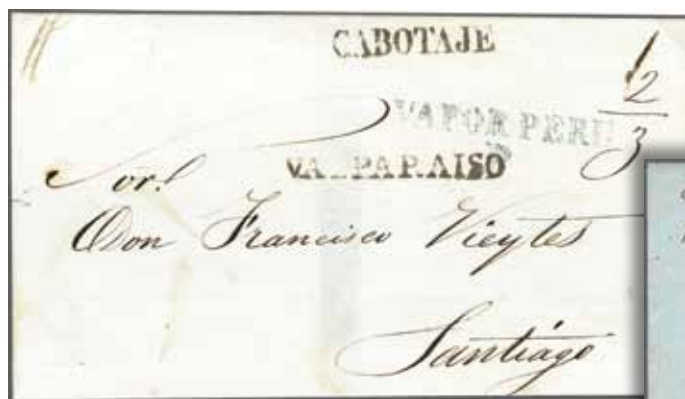 CABOTAJE
2
VAPOR PERU
3
VALPARAISO
Sor.
Don Francisco Vieytes
Santiago